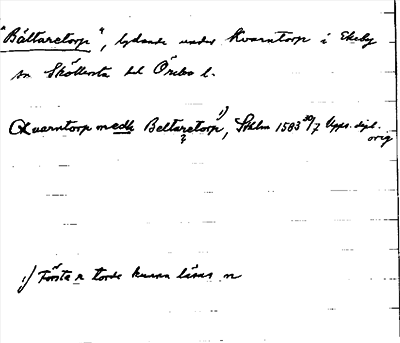 "Bältaretorp", lydande under Kvarntorp i Ekeby
sn Sköllersta hd Örebro l.
Qvarntorp medh Beltaretorp, 1) Sthlm 1583 30/7 Upps. dipl.
?
orig
1) Första r torde kunna läsas n